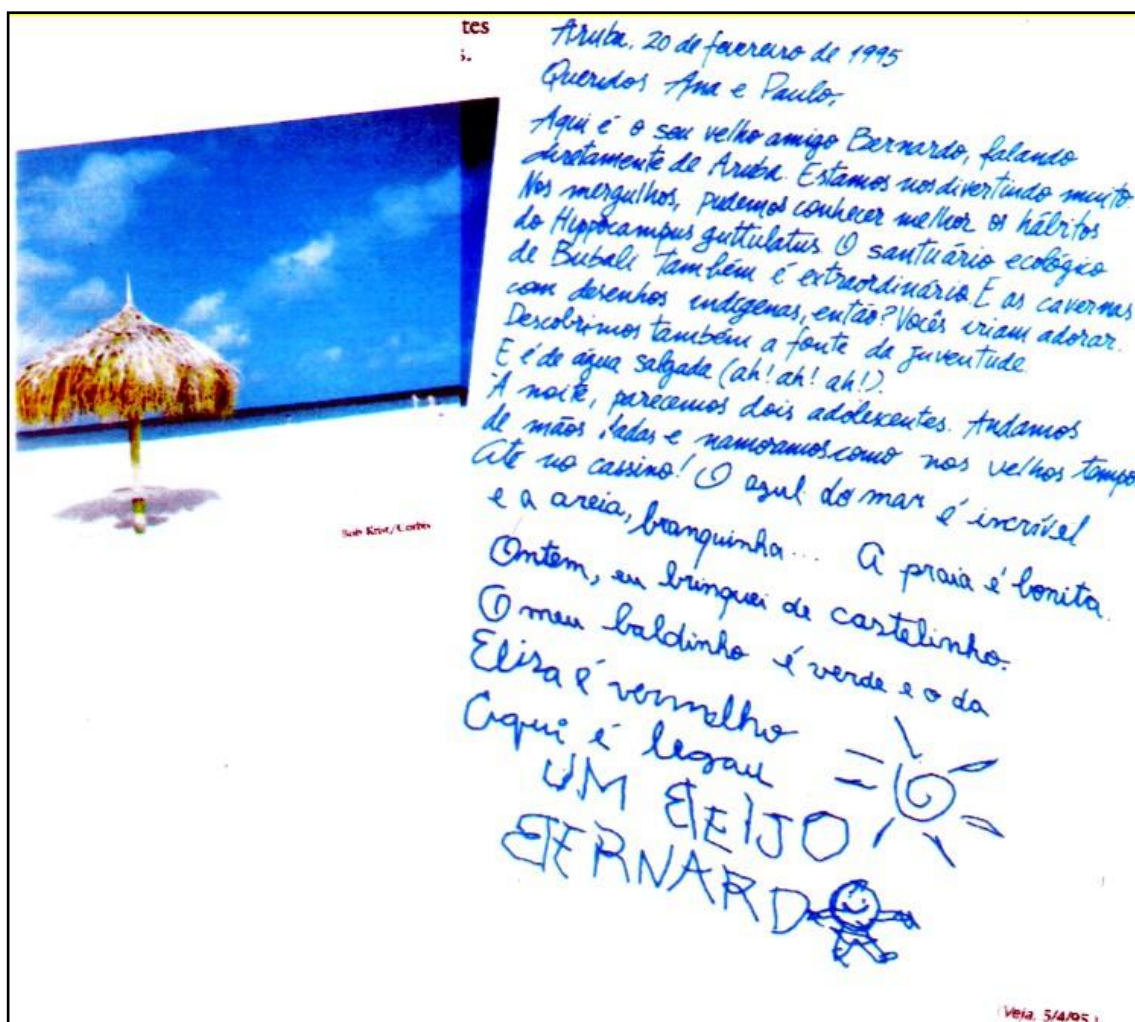 tes
s.
Aruba, 20 de fevereiro de 1995
Queridos Ana e Paulo,
Aqui é o seu velho amigo Bernardo, falando
diretamente de Aruba. Estamos nos divertindo muito.
Nos mergulhos, pudemos conhecer melhor os hábitos
do Hippocampus guttulatus. O santuário ecológico
de Bubali também é extraordinário. E as cavernas
com desenhos indígenas, então? Vocês iriam adorar.
Descobrimos também a fonte da juventude.
E é de água salgada (ah! ah! ah!).
À noite, parecemos dois adolescentes. Andamos
de mãos dadas e namoramos como nos velhos tempo
Até no cassino! O azul do mar é incrível
e a areia, branquinha... A praia é bonita.
Ontem, eu brinquei de castelinho.
O meu baldinho é verde e o da
Elisa é vermelho
Aqui é legau
UM BEIJO
BERNARDO
Bob Krist/Corbis
(Veja, 5/4/95.)